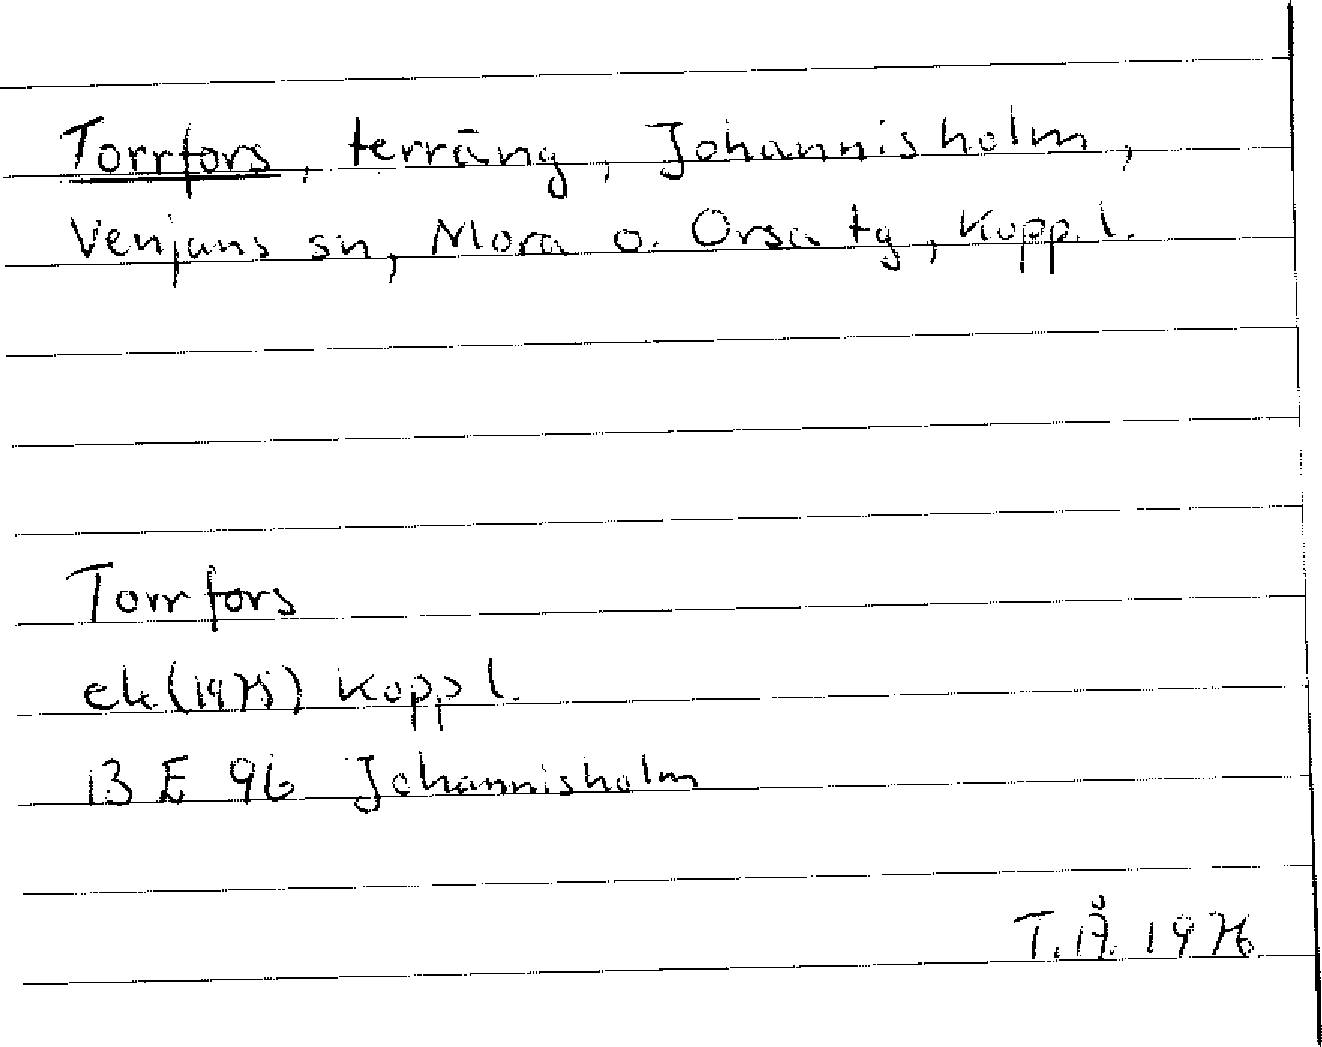 Torrfors, terräng, Johannisholm,
Venjans sn, Mora o. Orsa tg, Kopp. l.
Torrfors
ek (1975) Kopp l.
13 E 9b Johannisholm
T.Å. 1976